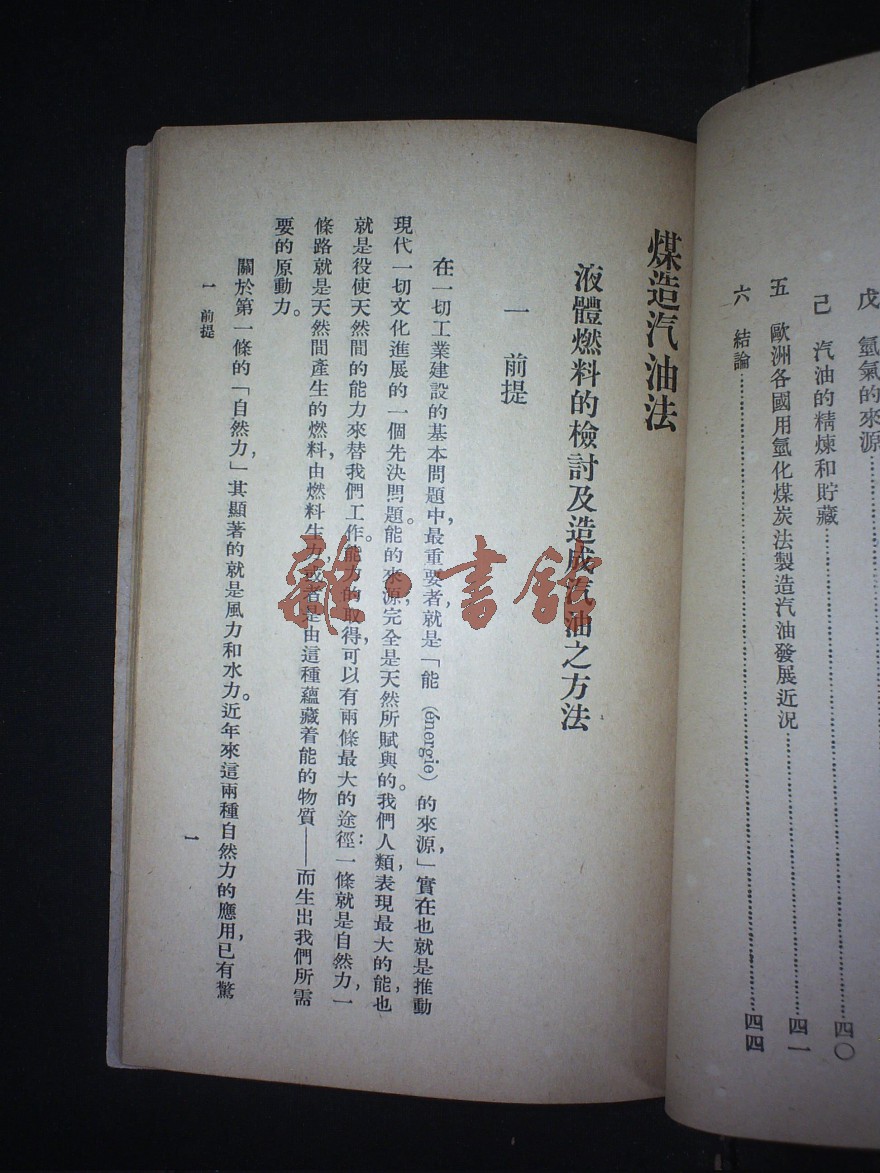 戊　氫氣的來源……
己　汽油的精煉和貯藏……四〇
五　歐洲各國用氫化煤炭法製造汽油發展近況……四一
六　結論……四四
煤造汽油法
液體燃料的檢討及造成汽油之方法
一　前提
在一切工業建設的基本問題中，最重要者，就是「能（énergie）的來源，」實在也就是推動
現代一切文化進展的一個先決問題。能的來源，完全是天然所賦與的。我們人類，表現最大的能，也
就是役使天然間的能力來替我們工作。能力的取得，可以有兩條最大的途徑：一條就是自然力，一
條路就是天然間產生的燃料，由燃料生力，或者是由這種蘊藏着能的物質——而生出我們所需
要的原動力。
關於第一條的「自然力，」其顯著的就是風力和水力。近年來這兩種自然力的應用，已有驚
一　前提
一
雜·書館